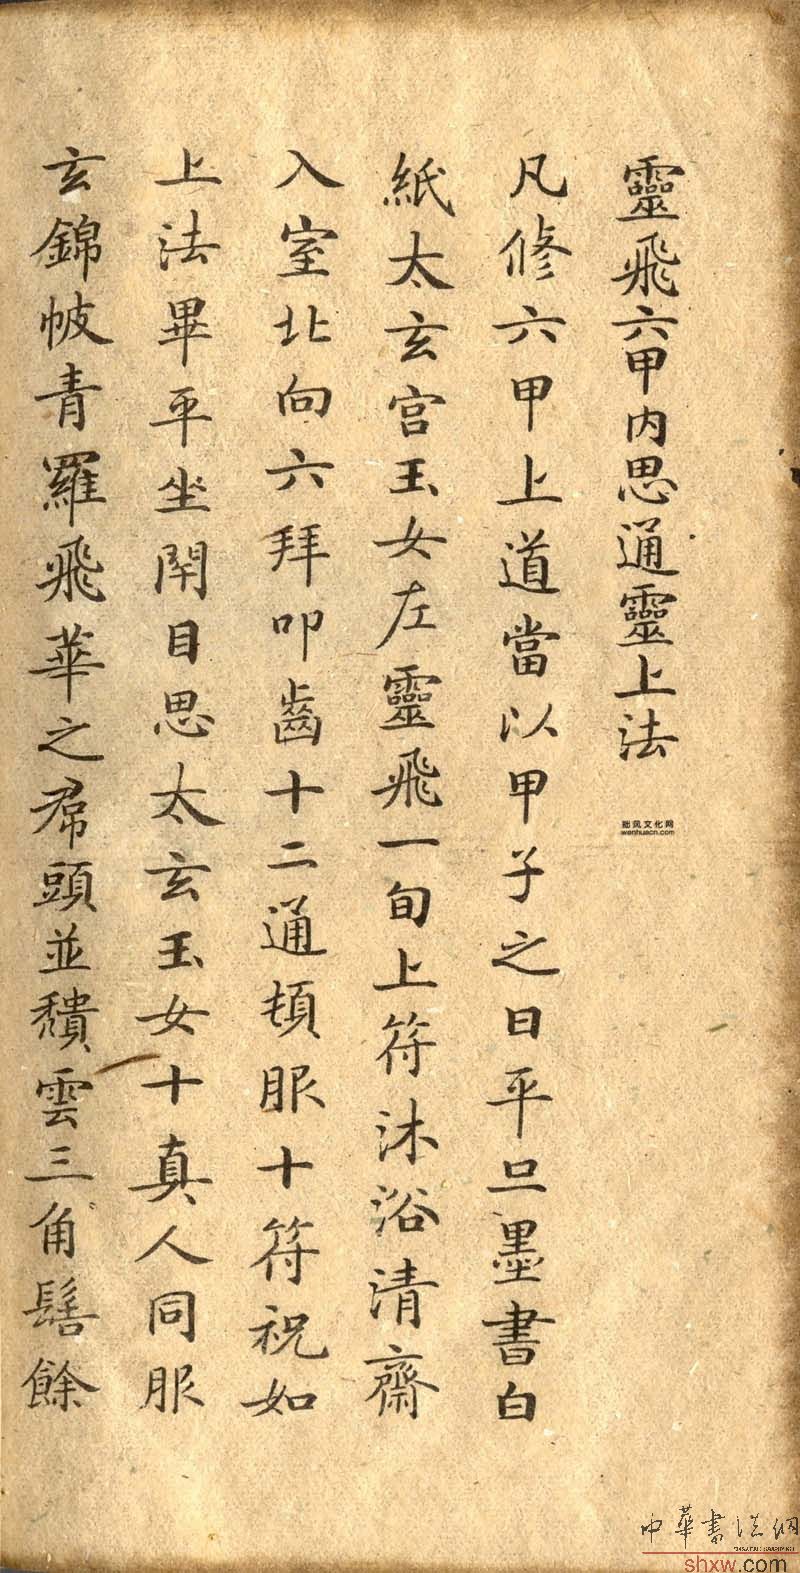 靈飛六甲內思通靈上法
凡修六甲上道當以甲子之日平旦墨書白
紙太玄宮玉女左靈飛一旬上符沐浴清齋
入室北向六拜叩齒十二通頓服十符祝如
上法畢平坐閉目思太玄玉女十真人同服
玄錦帔青羅飛華之帬頭並穨雲三角髻餘
拙风文化网
wenhuacn.com
中華書法網
shxw.com